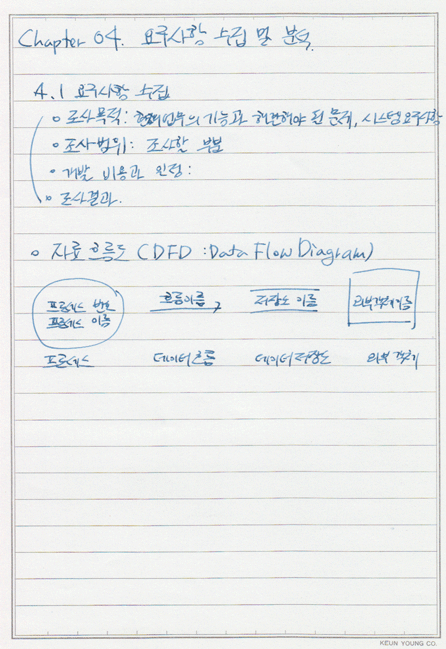 Chapter 04. 요구사항 수집 및 분석.
4.1 요구사항 수집
조사목적: 현재업무의 기능과 해결해야 된 문제, 시스템요구사항
조사범위: 조사할 부분
개발 비용과 일정:
조사결과.
자료 흐름도 (DFD :Data Flow Diagram)
프로세스 번호 흐름이름 저장소 이름 외부객체이름
프로세스 이름
프로세스 데이터흐름 데이터저장소 외부객체
KEUN YOUNG CO.